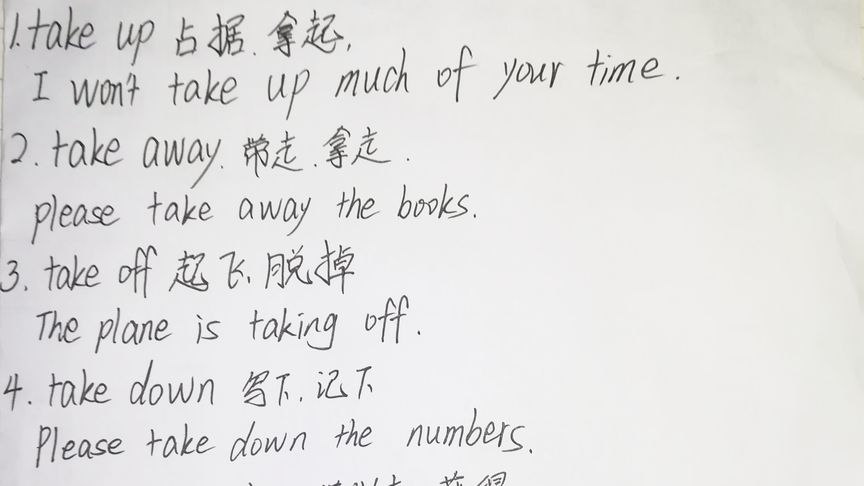 1. take up 占据、拿起,
I won't take up much of your time.
2. take away. 带走、拿走.
please take away the books.
3. take off 起飞、脱掉
The plane is taking off.
4. take down 写下、记下
Please take down the numbers.